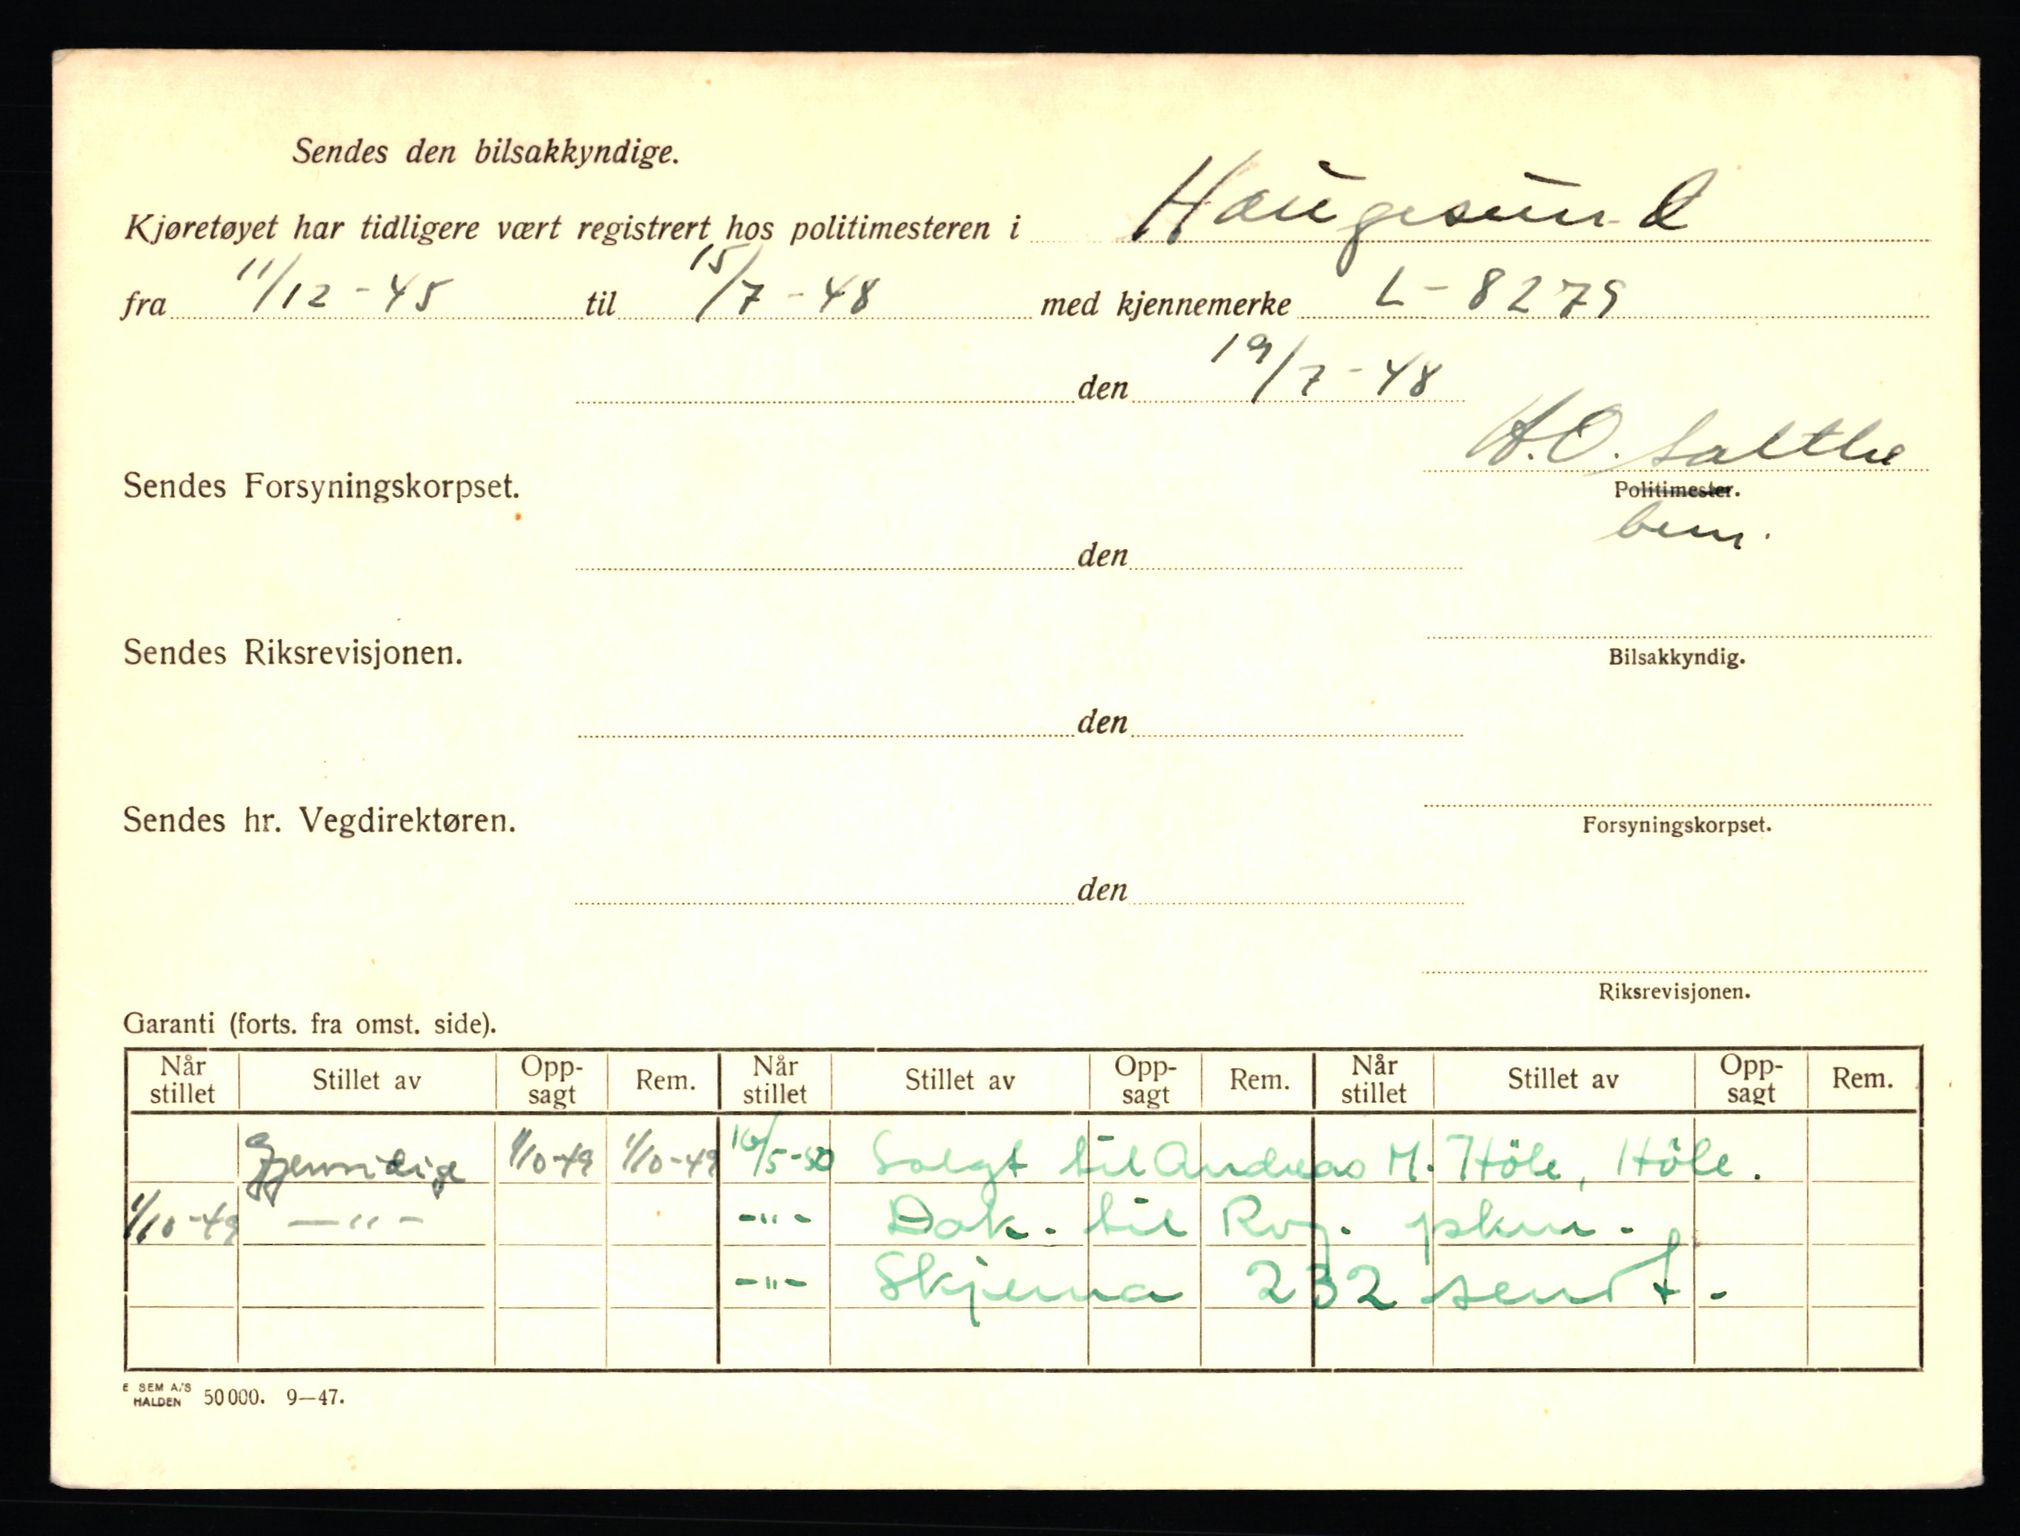 Sendes den bilsakkyndige.
Kjøretøyet har tidligere vært registrert hos politimesteren i Haugesund
fra 11/12-45 til 15/7-48 med kjennemerke L-8279
den 19/7-48
H.O. Salthe
Sendes Forsyningskorpset.
Politimester.
bem.
den
Sendes Riksrevisjonen.
Bilsakkyndig.
den
Sendes hr. Vegdirektøren.
Forsyningskorpset.
den
Riksrevisjonen.
Garanti (forts. fra omst. side).
Når stillet Stillet av Opp-sagt Rem. Når stillet Stillet av Opp-sagt Rem. Når stillet Stillet av Opp-sagt Rem.
Gjensidige 1/10-49 1/10-49 16/5-50 Solgt til Andreas M. Höle, Höle.
1/10-49 —"— -"- Dok. til Rog. pkm.
-"- Skjema 232 sendt.
E SEM A/S HALDEN 50000. 9—47.